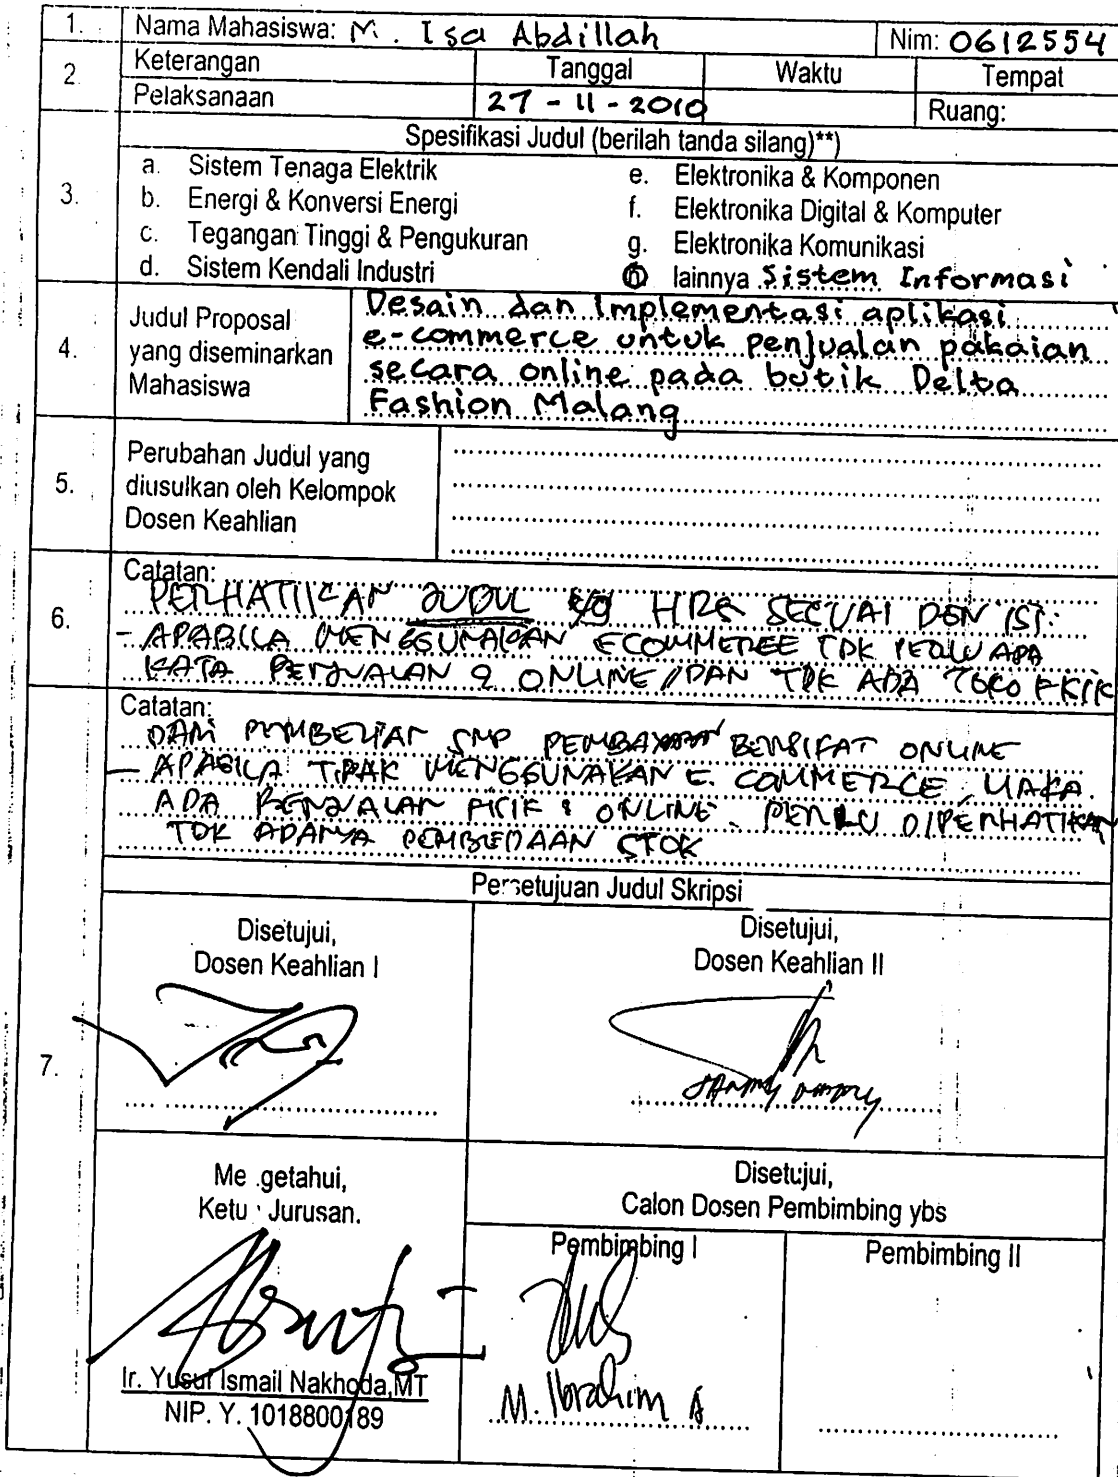 1. Nama Mahasiswa: M. Isa Abdillah Nim: 0612554
2. Keterangan Tanggal Waktu Tempat
Pelaksanaan 27 - 11 - 2010 Ruang:
Spesifikasi Judul (berilah tanda silang)**)
3.
a. Sistem Tenaga Elektrik e. Elektronika & Komponen
b. Energi & Konversi Energi f. Elektronika Digital & Komputer
c. Tegangan Tinggi & Pengukuran g. Elektronika Komunikasi
d. Sistem Kendali Industri h lainnya Sistem Informasi
4.
Judul Proposal
yang diseminarkan
Mahasiswa
Desain dan Implementasi aplikasi
e-commerce untuk penjualan pakaian
secara online pada butik Delta
Fashion Malang
5.
Perubahan Judul yang
diusulkan oleh Kelompok
Dosen Keahlian
6.
Catatan:
PERHATIKAN JUDUL yg HRS SECUAI DEN ISI.
- APABILA MENGGUNAKAN ECOMMERCE TDK PERLU ADA
KATA PENJUALAN & ONLINE / DAN TDK ADA TOKO
Catatan:
DARI PEMBELIAN SMP PEMBAYARAN BERSIFAT ONLINE
- APABILA TIDAK MENGGUNAKAN E. COMMERCE, MAKA
ADA PENJUALAN FISIK & ONLINE. PERLU DIPERHATIKAN
TDK ADANYA PEMBEDAAN STOK
Persetujuan Judul Skripsi
7.
Disetujui,
Dosen Keahlian I
Disetujui,
Dosen Keahlian II
Me getahui,
Ketu Jurusan.
Ir. Yusuf Ismail Nakhoda,MT
NIP. Y. 1018800189
Disetujui,
Calon Dosen Pembimbing ybs
Pembimbing I Pembimbing II
M. Ibrahim A